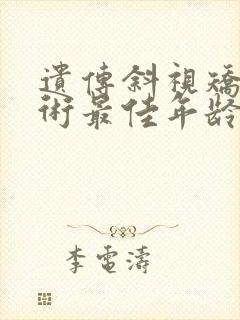 遺傳斜視矯
術最佳年齡
李電濤